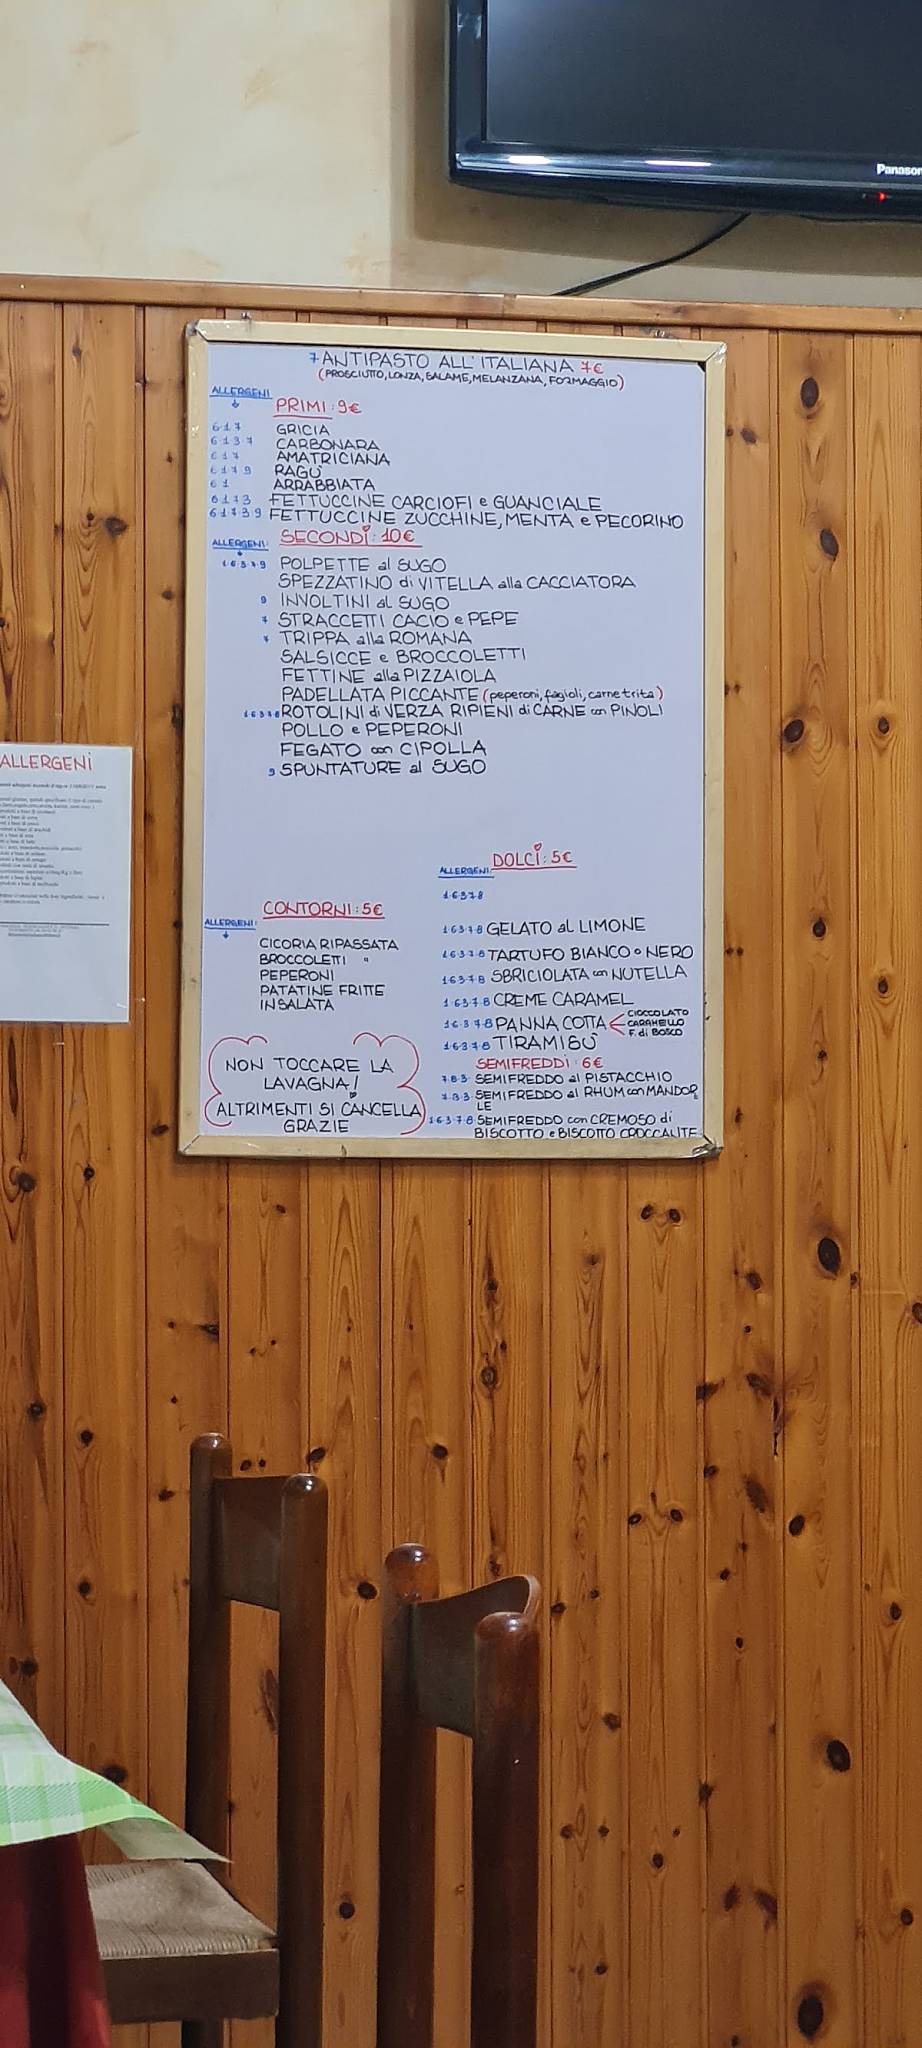 Panason
7 ANTIPASTO ALL'ITALIANA 7€
(PROSCIUTTO, LONZA, SALAME, MELANZANA, FORMAGGIO)
ALLERGENI
PRIMI: 9€
6 1 7 GRICIA
6 1 3 7 CARBONARA
6 1 7 AMATRICIANA
6 1 7 9 RAGÙ
6 1 ARRABBIATA
6 1 7 3 FETTUCCINE CARCIOFI e GUANCIALE
6 1 7 3 9 FETTUCCINE ZUCCHINE, MENTA e PECORINO
ALLERGENI: SECONDI: 10€
1·6·3·7·9 POLPETTE al SUGO
SPEZZATINO di VITELLA alla CACCIATORA
9 INVOLTINI al SUGO
7 STRACCETTI CACIO e PEPE
7 TRIPPA alla ROMANA
SALSICCE e BROCCOLETTI
FETTINE alla PIZZAIOLA
PADELLATA PICCANTE (peperoni, fagioli, carne trita)
1·6·3·7·8 ROTOLINI di VERZA RIPIENI di CARNE con PINOLI
POLLO e PEPERONI
FEGATO con CIPOLLA
9 SPUNTATURE al SUGO
ALLERGENI
CONTORNI: 5€
ALLERGENI:
CICORIA RIPASSATA
BROCCOLETTI "
PEPERONI
PATATINE FRITTE
INSALATA
NON TOCCARE LA
LAVAGNA!
ALTRIMENTI SI CANCELLA
GRAZIE
DOLCI: 5€
ALLERGENI:
1·6·3·7·8
1·6·3·7·8 GELATO al LIMONE
1·6·3·7·8 TARTUFO BIANCO o NERO
1·6·3·7·8 SBRICIOLATA con NUTELLA
1·6·3·7·8 CREME CARAMEL
1·6·3·7·8 PANNA COTTA CIOCCOLATO
CARAMELLO
F. di BOSCO
1·6·3·7·8 TIRAMISÙ
SEMIFREDDI: 6€
7·8·3 SEMIFREDDO al PISTACCHIO
SEMIFREDDO al RHUM con MANDOR
LE
1·6·3·7·8 SEMIFREDDO con CREMOSO di
BISCOTTO e BISCOTTO CROCCANTE